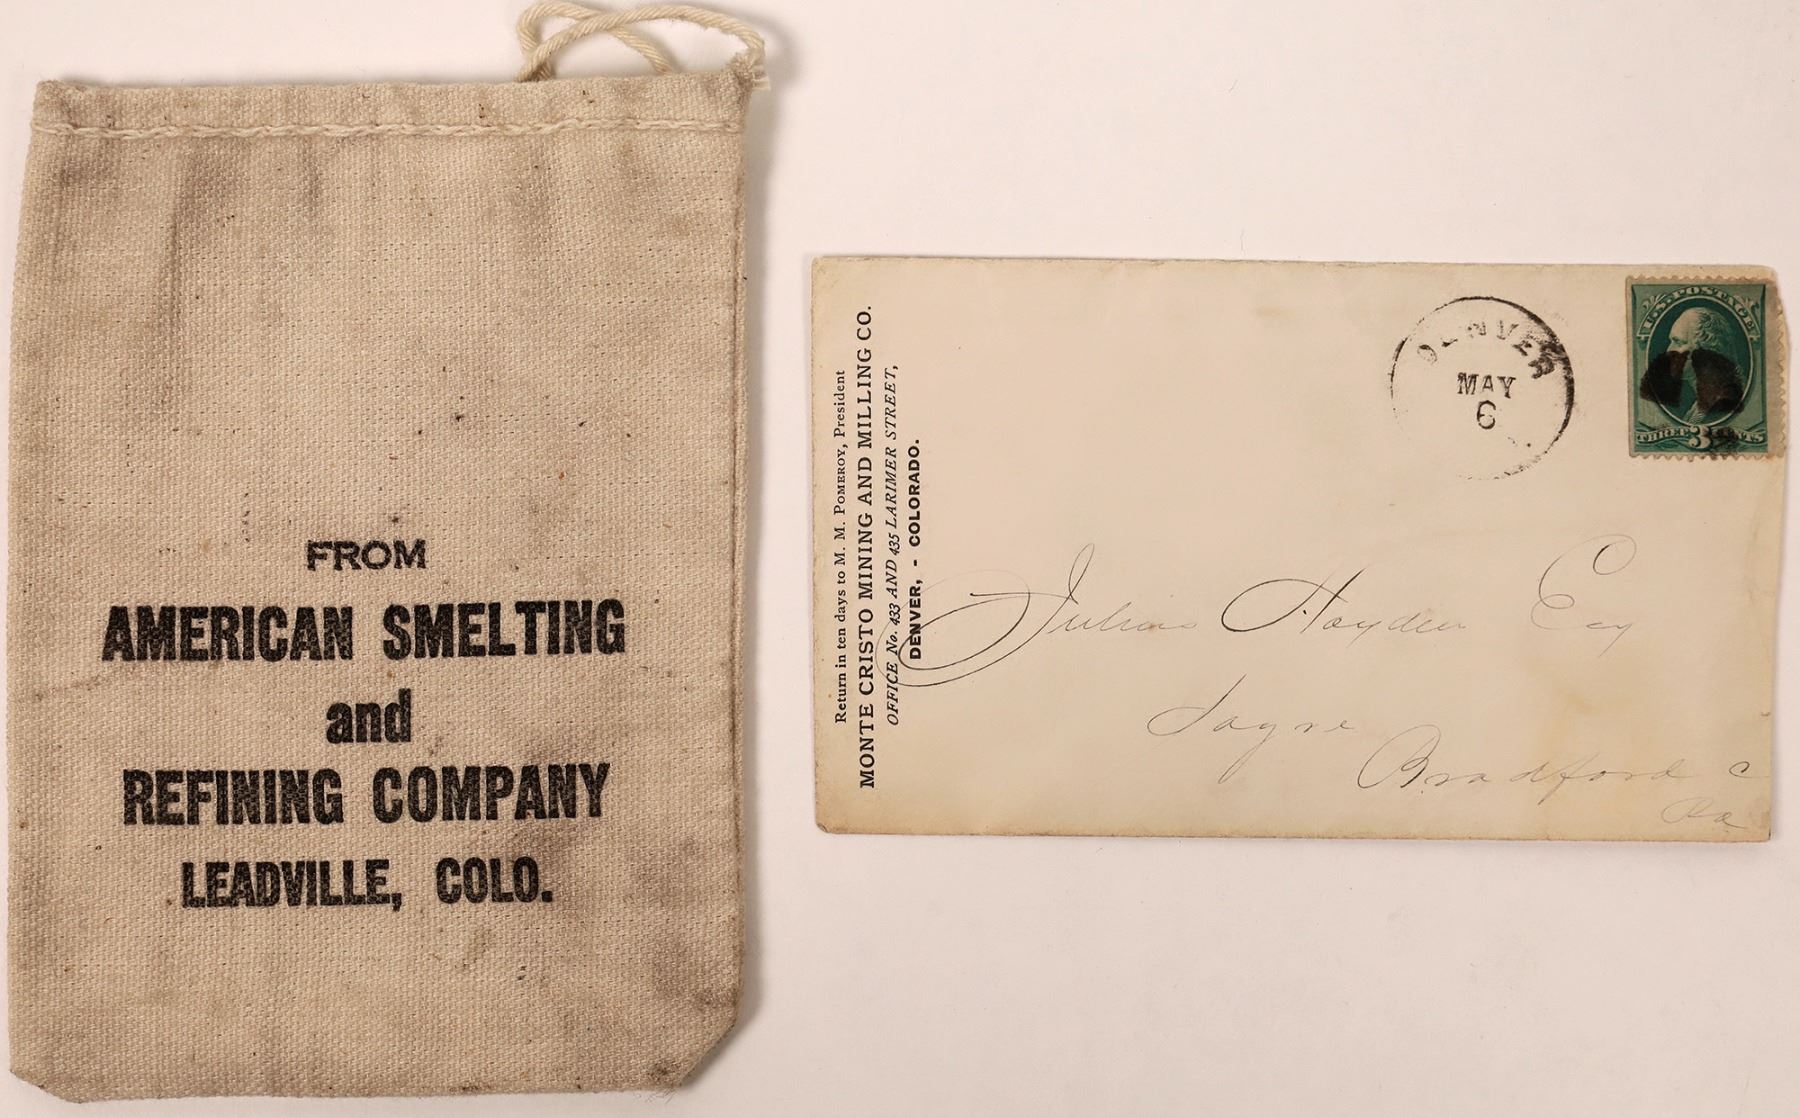 FROM
AMERICAN SMELTING
and
REFINING COMPANY
LEADVILLE, COLO.
Return in ten days to M. M. POMEROY, President
MONTE CRISTO MINING AND MILLING CO.
OFFICE No. 433 AND 435 LARIMER STREET,
DENVER, - COLORADO.
DENVER
MAY
6
U.S. POSTAGE
THREE 3 CENTS
Julius Hayden Esq
Sayre
Bradford C
Pa